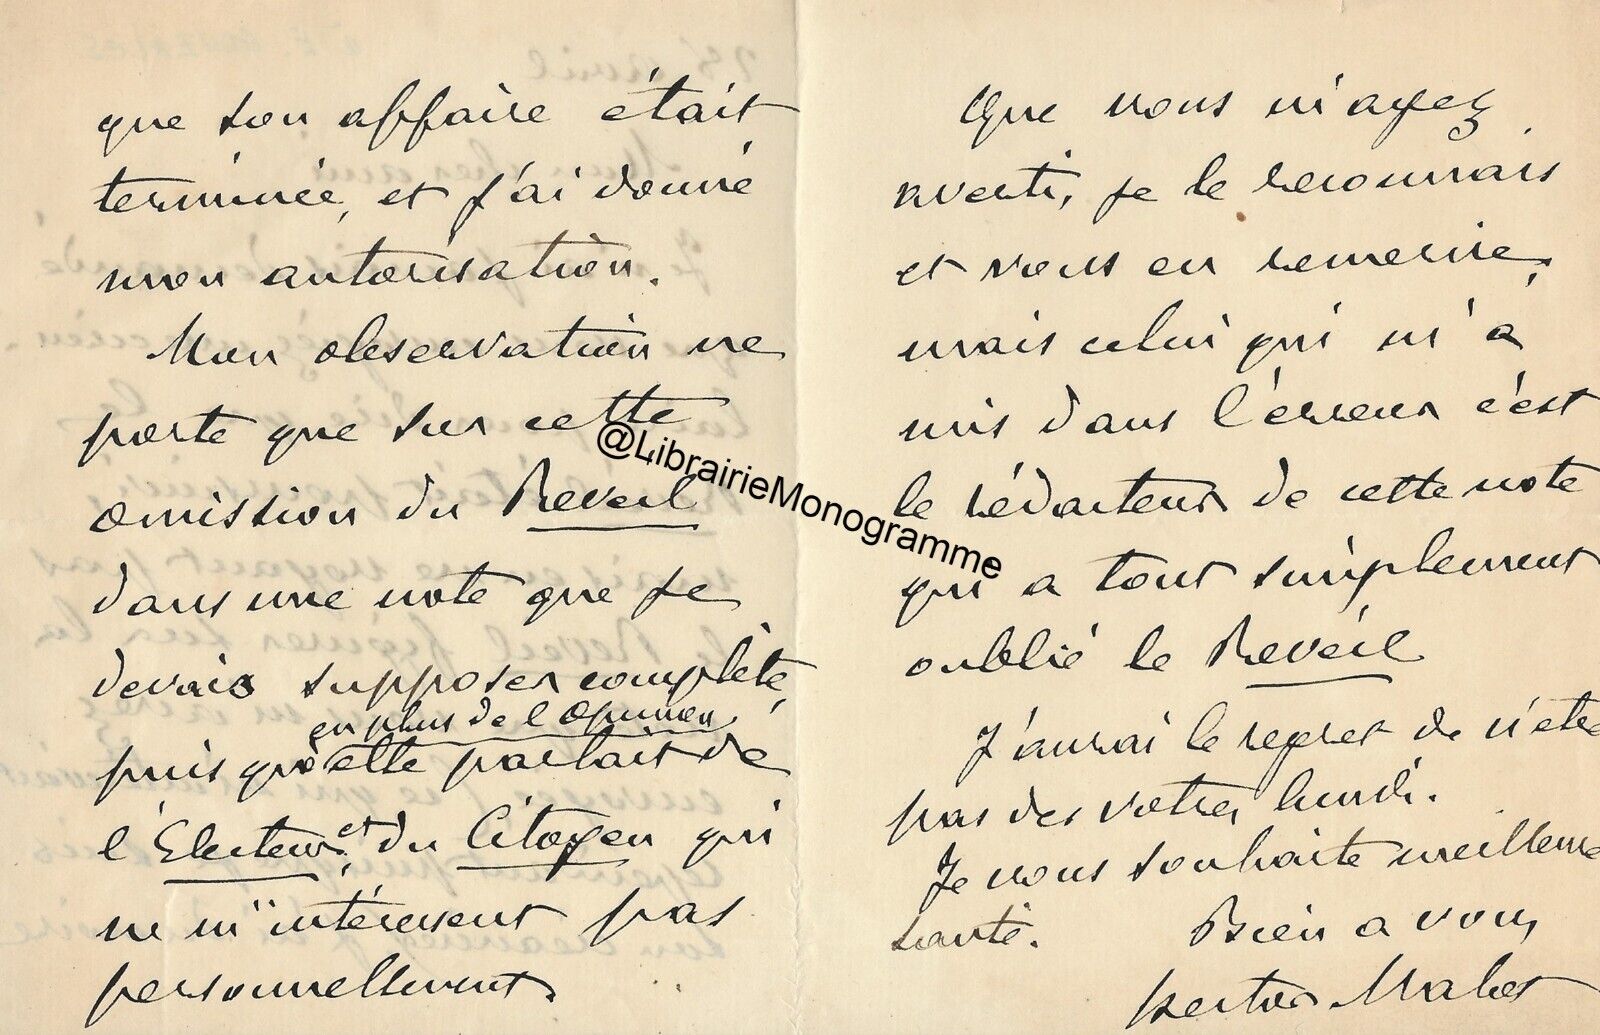 que son affaire était
terminée, et j'ai donné
mon autorisation.
Mon observation ne
porte que sur cette
omission du Reveil
dans une note que je
devais supposer complète,
en plus de l'Opinion
puis qu'elle parlait de
l'Electeur, et du Citoyen qui
ne m'intéressent pas
personnellement.
Que vous m'ayez
averti, je le reconnais
et vous en remercie,
mais celui qui m'a
mis dans l'erreur c'est
le rédacteur de cette note
qui a tout simplement
oublié le Reveil
J'aurai le regret de n'etre
pas des votres lundi.
Je vous souhaite meilleure
santé. Bien a vous
Hector Malot
@LibrairieMonogramme